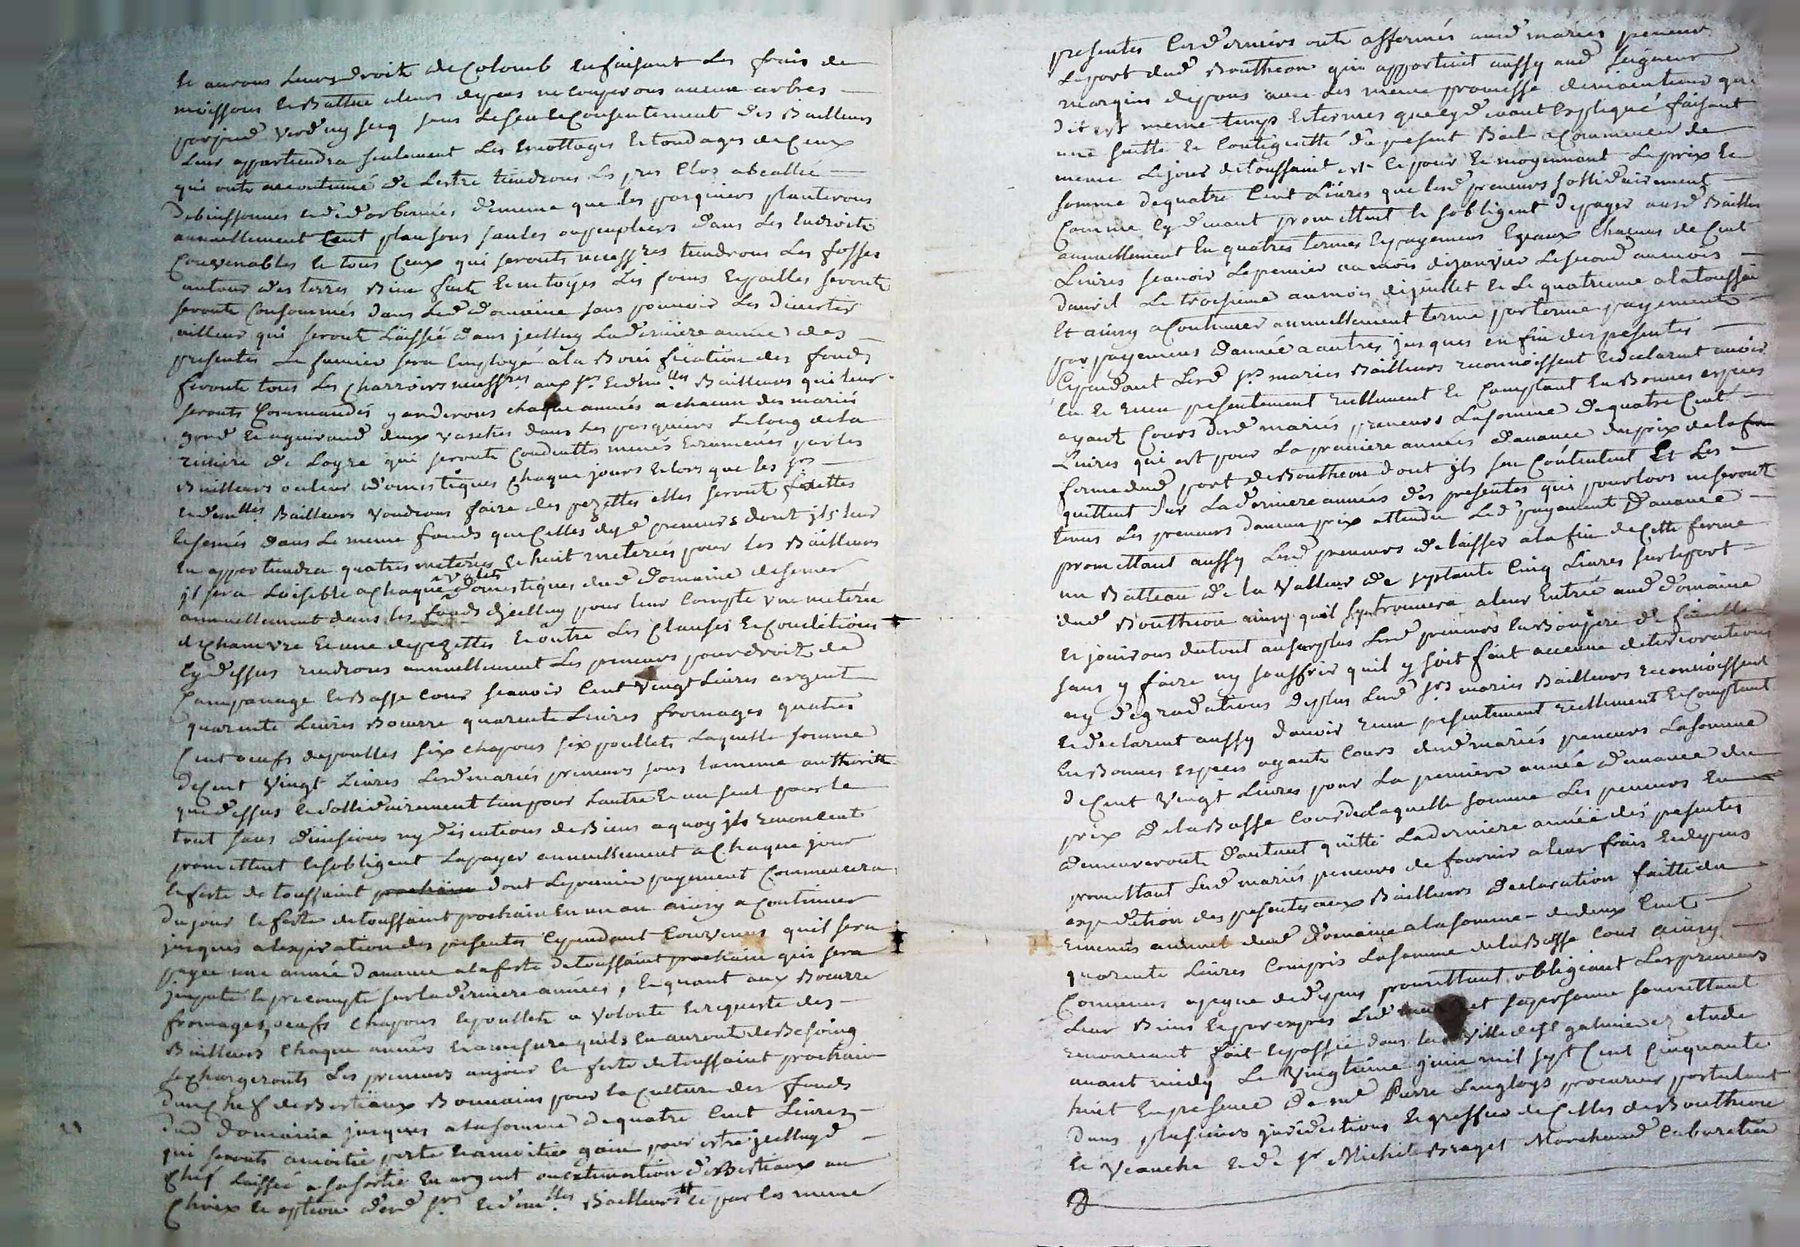 et aurons leurs droits de Colomb en faisant les frais de
moissons et Battue a leurs depens ne couperons aucun arbres
par pied verd ny secq sans le seul Consentement des Bailleurs
leur appartiendra seulement les emottages et tondages de ceux
qui onts accoutumé de l'estre tiendrons les pres Clos
de buissonnes de mesme que les pasquiers planterons
annuellement Cent plansons saules ou peupliers dans les endroits
Convenables et tous Ceux qui seronts necessres tiendrons les fosses
autour des terres Bien fait et nettoyés les foins et pailles seronts
seronts Consommés dans led domaine sans pouvoir les divertir
ailleur qui seronts laissée dans jcelluy la derniere année des
presentes le fumier sera Employé a la Bonification des fonds
feronts tous les Charroirs necessres aux srs et dmelles Bailleurs qui leur
seronts Commandés garderons chaque années a chacun des mariés
deux vaches dans les pasquiers le long de la
riviere de Loyre qui seronts conduittes menés et ramenés par les
Bailleurs ou leur domestiques chaque jours et lors que les srs
et dmelles Bailleurs voudrons faire des pezettes elles seront faittes
et semés dans le meme fonds que celles desd preneurs dont jls leur
en appartiendra quatres meteries et huit meteries pour les Bailleurs
jl sera Loisible a chaque valets domestiques dud domaine de semer
annuellement dans les fonds djcelluy pour leur compte une meterie
de Chanvre et une de pezettes et outre les Clauses et Conditions
cy dessus rendrons annuellement les preneurs pour droit de
Campanage et Basse Cour scavoir Cent vingt Livres argent
quarente Livres Beurre quarente Livres fromages quatres
Cent oeufs de poulles six chapons six poullets laquelle somme
de Cent vingt Livres lesd mariés preneurs sous la meme authorité
que dessus et sollidairement l'un pour l'autre et un seul pour le
tout sans division ny discutions de Biens a quoy jls renoncent
promettent et s'obligent la payer annuellement a Chaque jour
et feste de toussaint dont le premier payement Commencera
du jour et feste de toussaint prochain en un an ainsy a Continuer
jusques a l'expiration des presentes Cependant Convenus qu'il sera
payer une année d'avance a la feste de toussaint prochain qui sera
jmputé et precompté sur la derniere années, et quant aux Beurre
fromages, oeufs Chapons et poullets a volonté et requeste des
Bailleurs Chaque années et a mesure quils en auront de Besoing
se Chargeronts les preneurs au jour et feste de toussaint prochain
d'un Chef de Bestiaux Bouvains pour la culture des fonds
dud domaine jusques a la somme de quatre Cent Livres
qui seronts a moitié perte et a moitié gain pour estre jcelluy d
Chef laissée a sa sortie en argent ou estimation de Bestiaux au
Choix et option desd srs et dmelles Bailleurs et par les meme
presentes les derniers onts affermés aud mariés preneurs
le port dud Bouthéon qui appartient aussy aud seigneur
marquis depous avec les meme promesse de maintenue que
dit est meme temps et termes que cy devant expliqué faisant
une suitte et contiguitté du present Bail a Commencer de
meme le jour de toussaint et ce pour et moyennant le prix et
somme de quatre Cent Livres que lesd preneurs sollidairement
comme cy devant promettent et s'obligent de payer ausd Bailleurs
annuellement en quatres termes et payemens egaux Chacuns de Cent
Livres scavoir le premier au mois de janvier le second au mois
d'avril le troisieme au mois de juillet et le quatrieme a la toussaint
Et ainsy a Continuer annuellement terme par terme payements
par payemens d'année a autres jusques en fin des presentes
Cependant lesd srs mariés Bailleurs reconnoissent et declarent avoir
eu et receu presentement reellement et Comptant en Bonnes especes
ayant Cours desd mariés preneurs la somme de quatre Cent
Livres qui est pour la premiere années d'avance du prix de la ferme
ferme dud port de Bouthéon dont jls sen Contentent et les
quittent sur la derniere années des presentes qui pour lors ne seronts
tenus les preneurs d'aucun prix attendu led payement d'avance
promettant aussy lesd preneurs de laisser a la fin de cette ferme
un Batteau de la Valleur de septante Cinq Livres sur le port
dud Bouthéon ainsy quil sy trouvera a leur Entrée aud domaine
et jouirons du tout au surplus lesd preneurs en Bon pere de famille
sans y faire ny souffrir quil y soit fait aucune deteriorations
ny degradations de plus lesd srs mariés Bailleurs reconnoissent
et declarent aussy d'avoir receu presentement reellement et Comptant
en Bonnes especes ayants Cours desd mariés preneurs la somme
de Cent vingt Livres pour la premiere année d'avance du
prix de la Basse Cour de laquelle somme les preneurs en
demeureronts d'autant quitte la derniere année des presentes
promettant lesd mariés preneurs de fournir a leur frais et depens
expedition des presentes aux Bailleurs declaration faitte du
revenus annuel dud domaine a la somme de deux Cents
quarente Livres compris la somme de la Basse Cour ainsy
Convenus a peyne de depens promettant obligeant les preneurs
leur Biens et par expres led et sa personne soumettant
renonceant fait et passée dans la ville de st galmier etude
avant midy le vingtième juin mil sept Cent Cinquante
huit En presence de me Pierre Langloys procureur postulant
dans plusieurs jurisdictions et greffier de Celles de Bouthéon
et Veauche et de sr Michel Braget Marchand Cabaretier